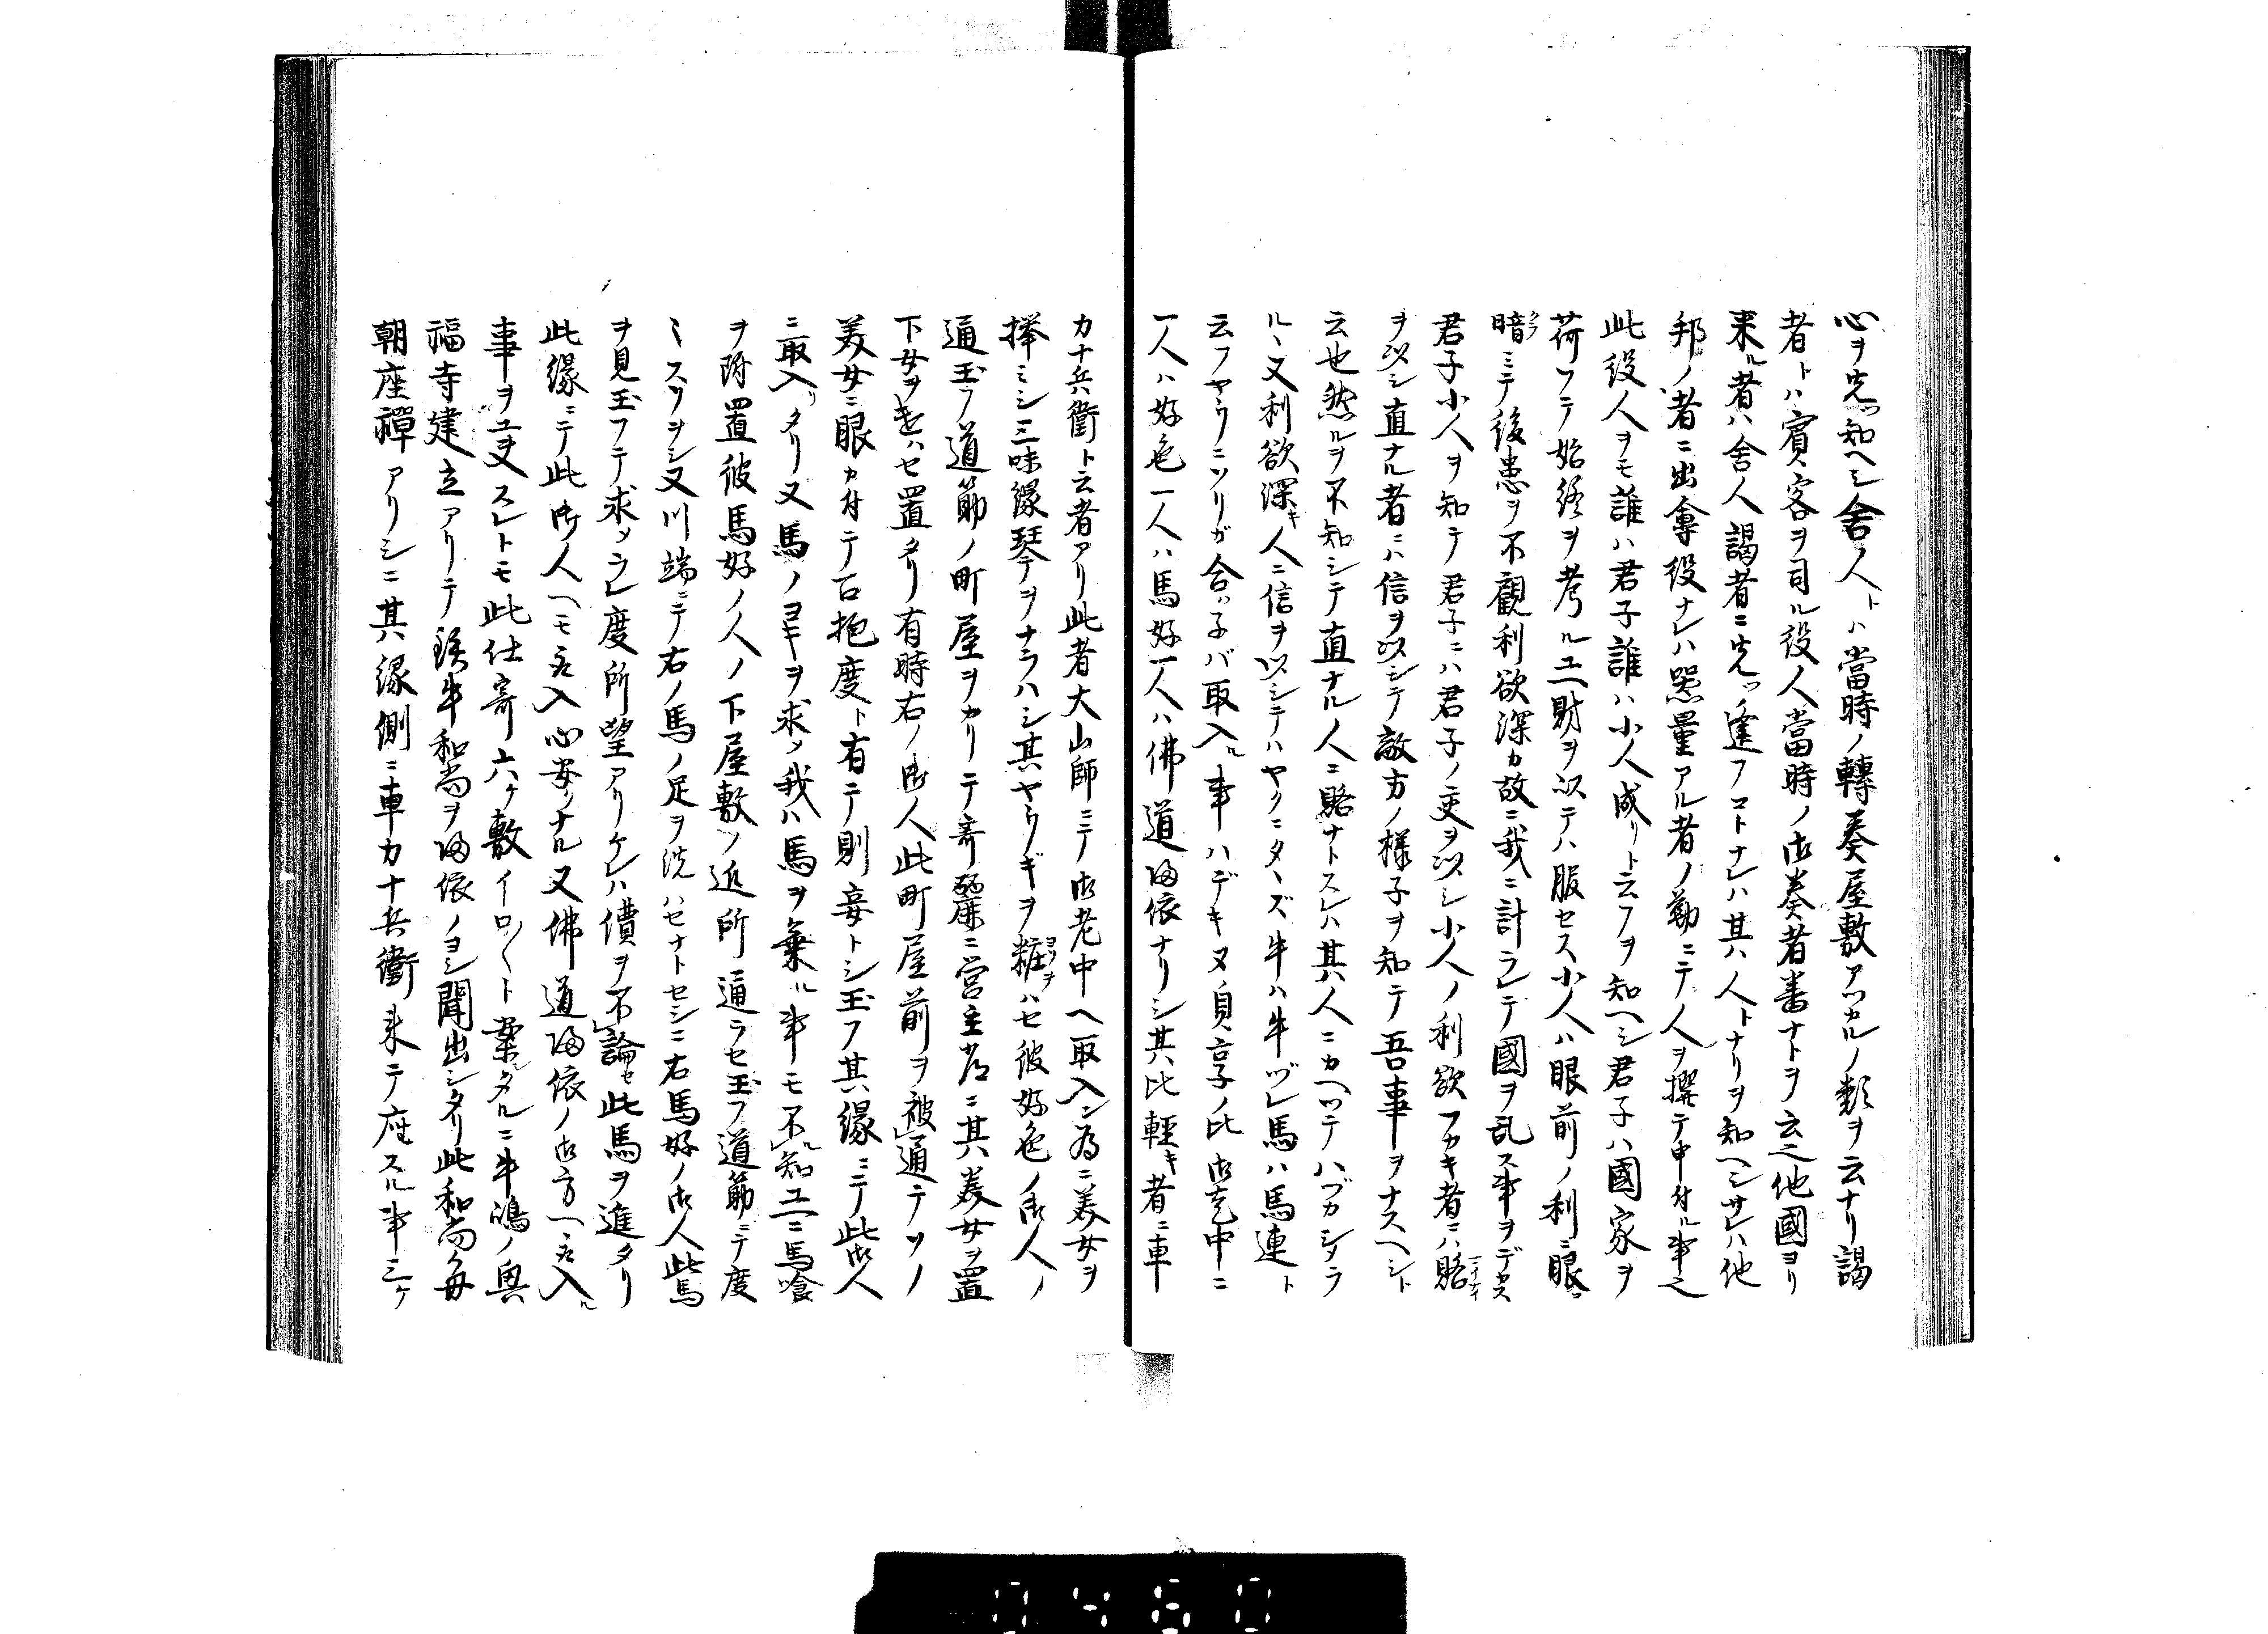 心ヲ先ッ知ヘシ舍人トハ當時ノ轉奏屋敷アツカルノ類ヲ云ナリ謁
者トハ賓客ヲ司ル役人當時ノ御奏者番ナトヲ云之他國ヨリ
来ル者ハ舍人謁者ニ先ッ逢フコトナレハ其人トナリヲ知ヘシサレハ他
邦ノ者ニ出會役ナレハ器量アル者ノ勤ニテ人ヲ撰テ申付ル事之
此役人ヲモ誰ハ君子誰ハ小人成リト云フヲ知ヘシ君子ハ國家ヲ
荷フテ始終ヲ考ルユヘ財ヲ以テハ服セス小人ハ眼前ノ利ニ眼ヲ
暗ミテ後患ヲ不觀利欲深カ故ニ我ニ計ラレテ國ヲ乱ス事ヲデカス
君子小人ヲ知テ君子ニハ君子ノ交ヲ以シ小人ノ利欲フカキ者ニハ賂
ヲ以シ直ナル者ニハ信ヲ以シテ敵方ノ様子ヲ知テ吾事ヲナスヘシト
云也然ルヲ不知シテ直ナル人ニ賂ナトスレハ其人ニカヘツテハヅカシメラ
ルヽ又利欲深キ人ニ信ヲ以シテハヤクニタヽズ牛ハ牛ヅレ馬ハ馬連ト
云フヤウニツリガ合ハ子バ取入ル事ハデキヌ貞享ノ比御老中ニ
一人ハ好色一人ハ馬好一人ハ佛道帰依ナリシ其比輕キ者ニ車
カ十兵衛ト云者アリ此者大山師ニテ御老中ヘ取入ン為ニ美女ヲ
擇ミシ三味線琴ヲナラハシ其ヤウギヲ粧ハセ彼好色ノ御人ノ
通玉フ道筋ノ町屋ヲカリテ奇麗ニ営主房ニ其美女ヲ置
下女ヲ遣ハセ置タリ有時右ノ御人此町屋前ヲ被通テソノ
美女ニ眼カ付テ召抱度ト有テ則妾トシ玉フ其縁ニテ此御人
ニ取入リタリ又馬ノヨキヲ求メ我ハ馬ヲ乗ル事モ不知ユヘニ馬喰
ヲ附置彼馬好ノ人ノ下屋敷ノ近所通ラセ玉フ道筋ニテ度
〻スリヲシ又川端ニテ右ノ馬ノ足ヲ洗ハセナトセシニ右馬好ノ御人此馬
ヲ見玉フテ求メラレ度所望アリケレハ價ヲ不論セ此馬ヲ進タリ
此縁ニテ此御人ヘモ立入心安クナル又佛道帰依ノ御方ヘ立入ル
事ヲユ叓スレトモ此仕寄六ヶ敷イロ〳〵ト案シタルニ牛嶋ノ興
福寺建立アリテ鉄牛和尚ヲ帰依ノヨシ聞出シタリ此和尚ノ毎
朝座禪アリシニ其縁側ニ車カ十兵衛来テ座スル事三ヶ